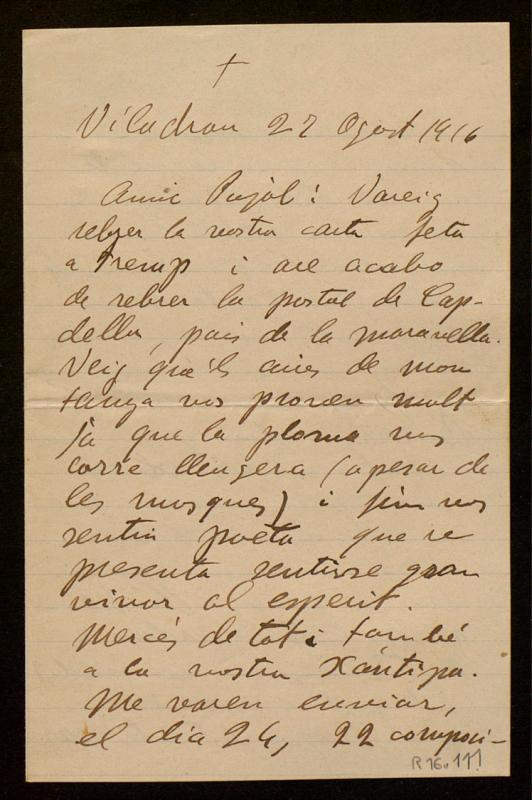 Viladrau 27 Agost 1916
Amic Pujol: Vareig
rebrer la vostra carta feta
a Tremp i are acabo
de rebrer la postal de Cap-
della, pais de la maravella.
Veig qu'els aires de mon
tanya vos proven molt
ja que la ploma vos
corre lleugera (apesar de
les mosques) i fins vos
sentiu poeta que
presenta sentirse gran
al esperit.
Mercés de tot i també
a la vostra Xántipa.
Me varen enviar,
el dia 24, 22 composi-
R 16.111